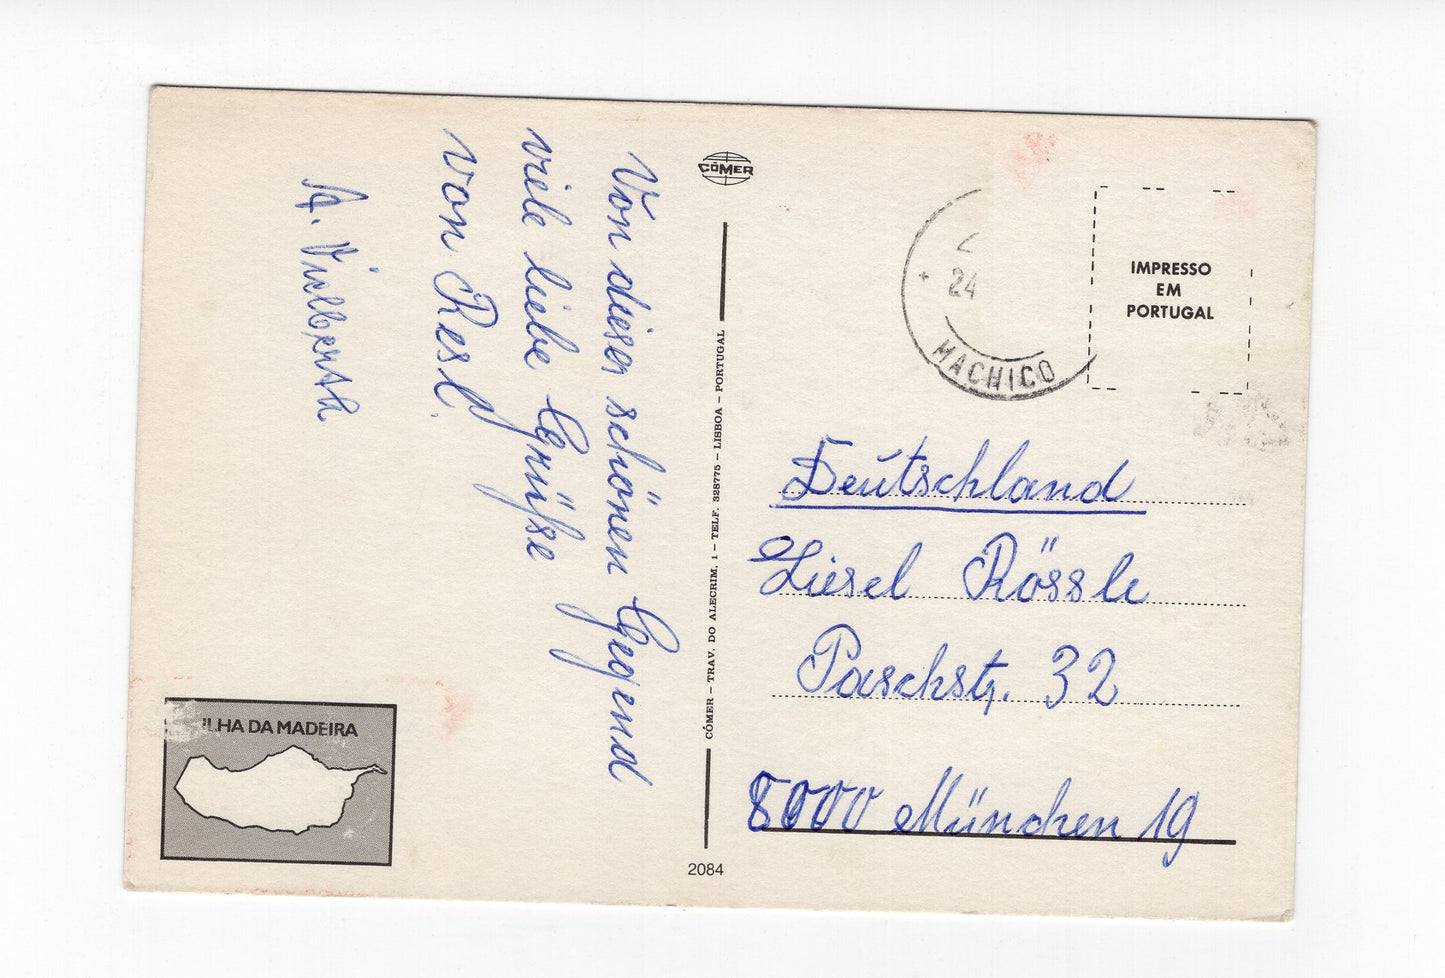 Von dieser schönen Gegend
viele liebe Grüße
von Resl.
CÓMER
CÓMER – TRAV. DO ALECRIM, 1 – TELF. 328775 – LISBOA – PORTUGAL
ILHA DA MADEIRA
2084
IMPRESSO
EM
PORTUGAL
24
MACHICO
Deutschland
Liesel Rössle
Paschstr. 32
8000 München 19